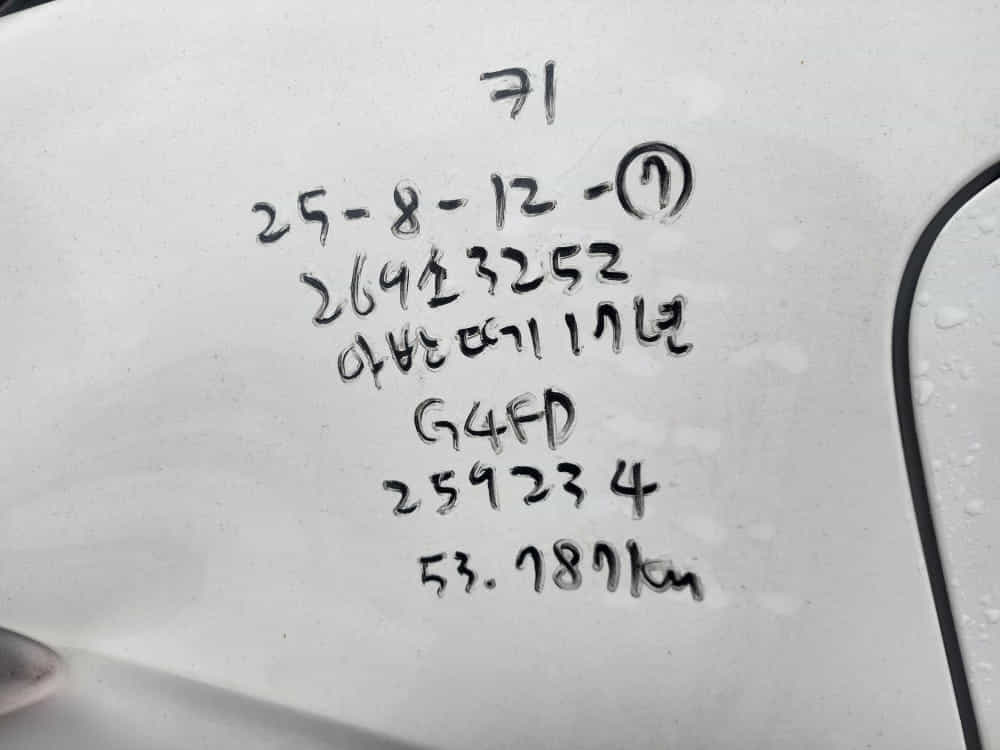 키
25-8-12-⑦
269소3252
아반떼 17년
G4FD
259234
53.787km